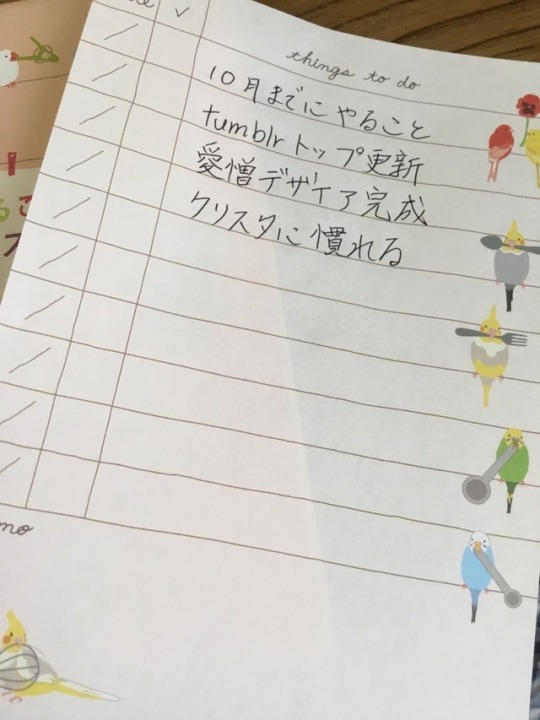 things to do
10月までにやること
tumblrトップ更新
愛憎デザイア完成
クリスタに慣れる